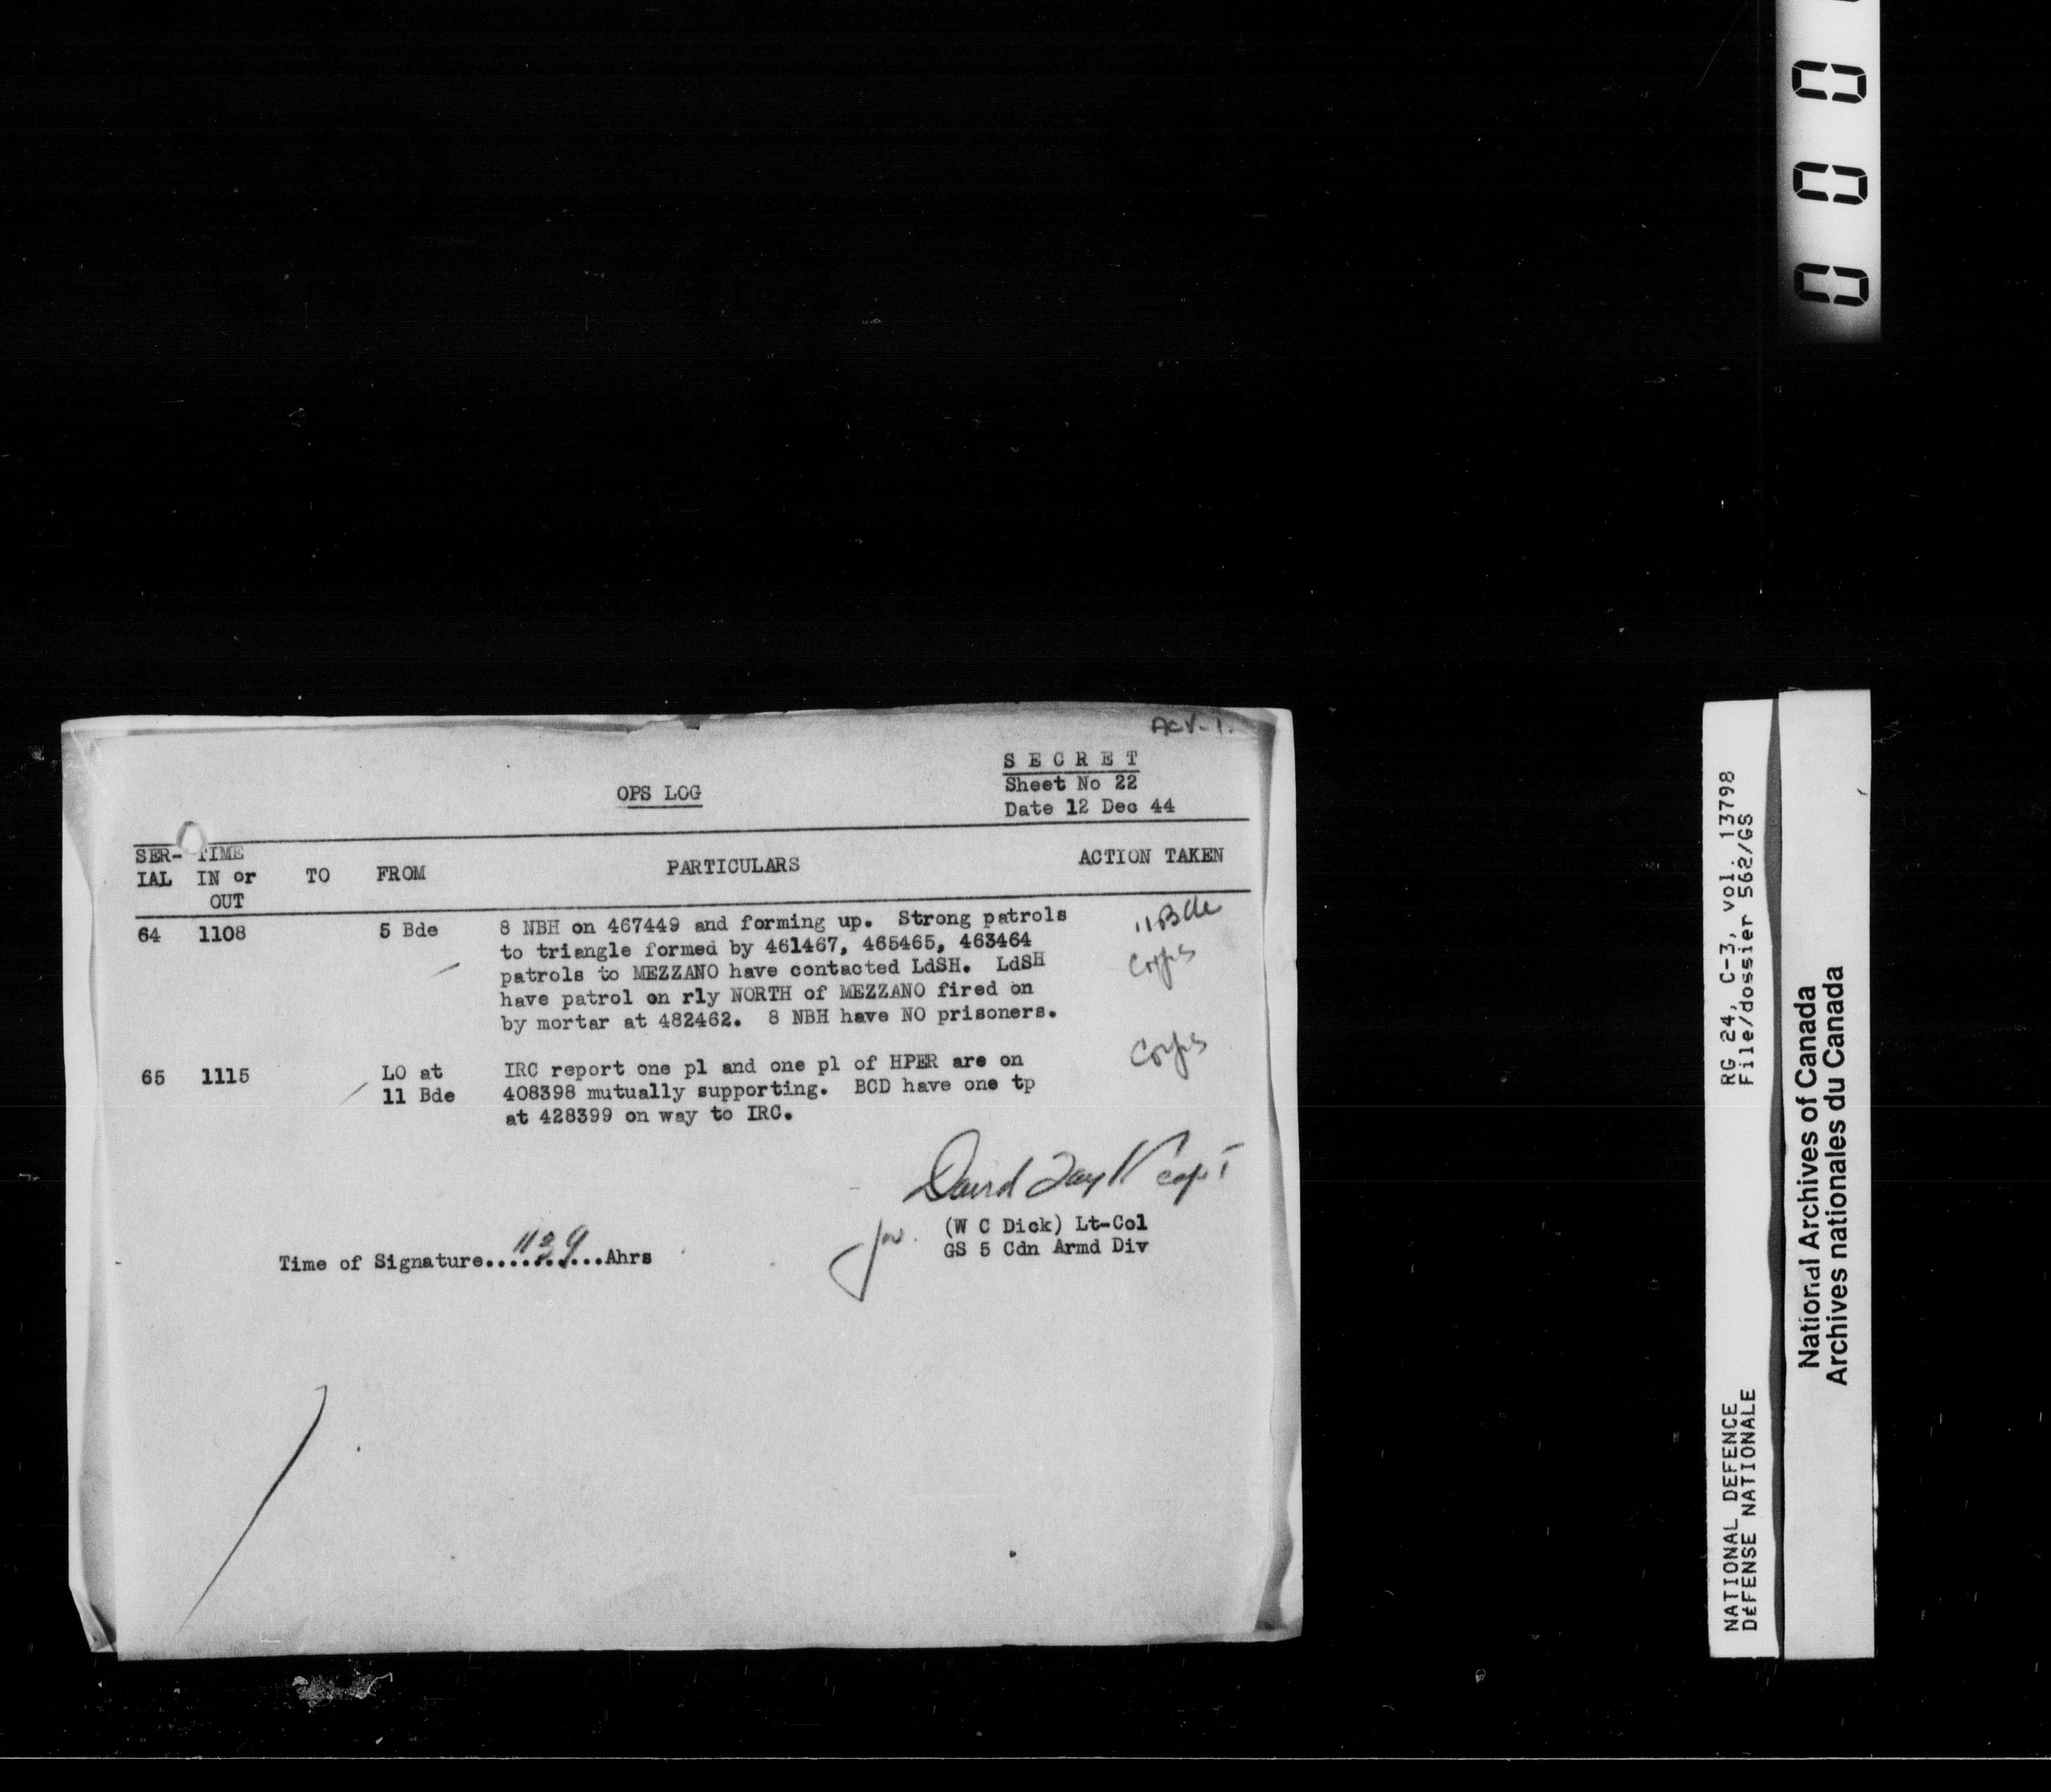 0 0 0
ACV-1.
SECRET
Sheet No 22
Date 12 Dec 44
OPS LOG
SER- TIME
IAL IN or TO FROM PARTICULARS ACTION TAKEN
OUT
64 1108 5 Bde 8 NBH on 467449 and forming up. Strong patrols 11 Bde
to triangle formed by 461467, 465465, 463464
patrols to MEZZANO have contacted LdSH. LdSH Corps
have patrol on rly NORTH of MEZZANO fired on
by mortar at 482462. 8 NBH have NO prisoners.
65 1115 LO at IRC report one pl and one pl of HPER are on Corps
11 Bde 408398 mutually supporting. BCD have one tp
at 428399 on way to IRC.
David Capt
for (W C Dick) Lt-Col
GS 5 Cdn Armd Div
Time of Signature.....1139...Ahrs
RG 24, C-3, vol. 13798
File/dossier 562/GS
NATIONAL DEFENCE
DÉFENSE NATIONALE
National Archives of Canada
Archives nationales du Canada